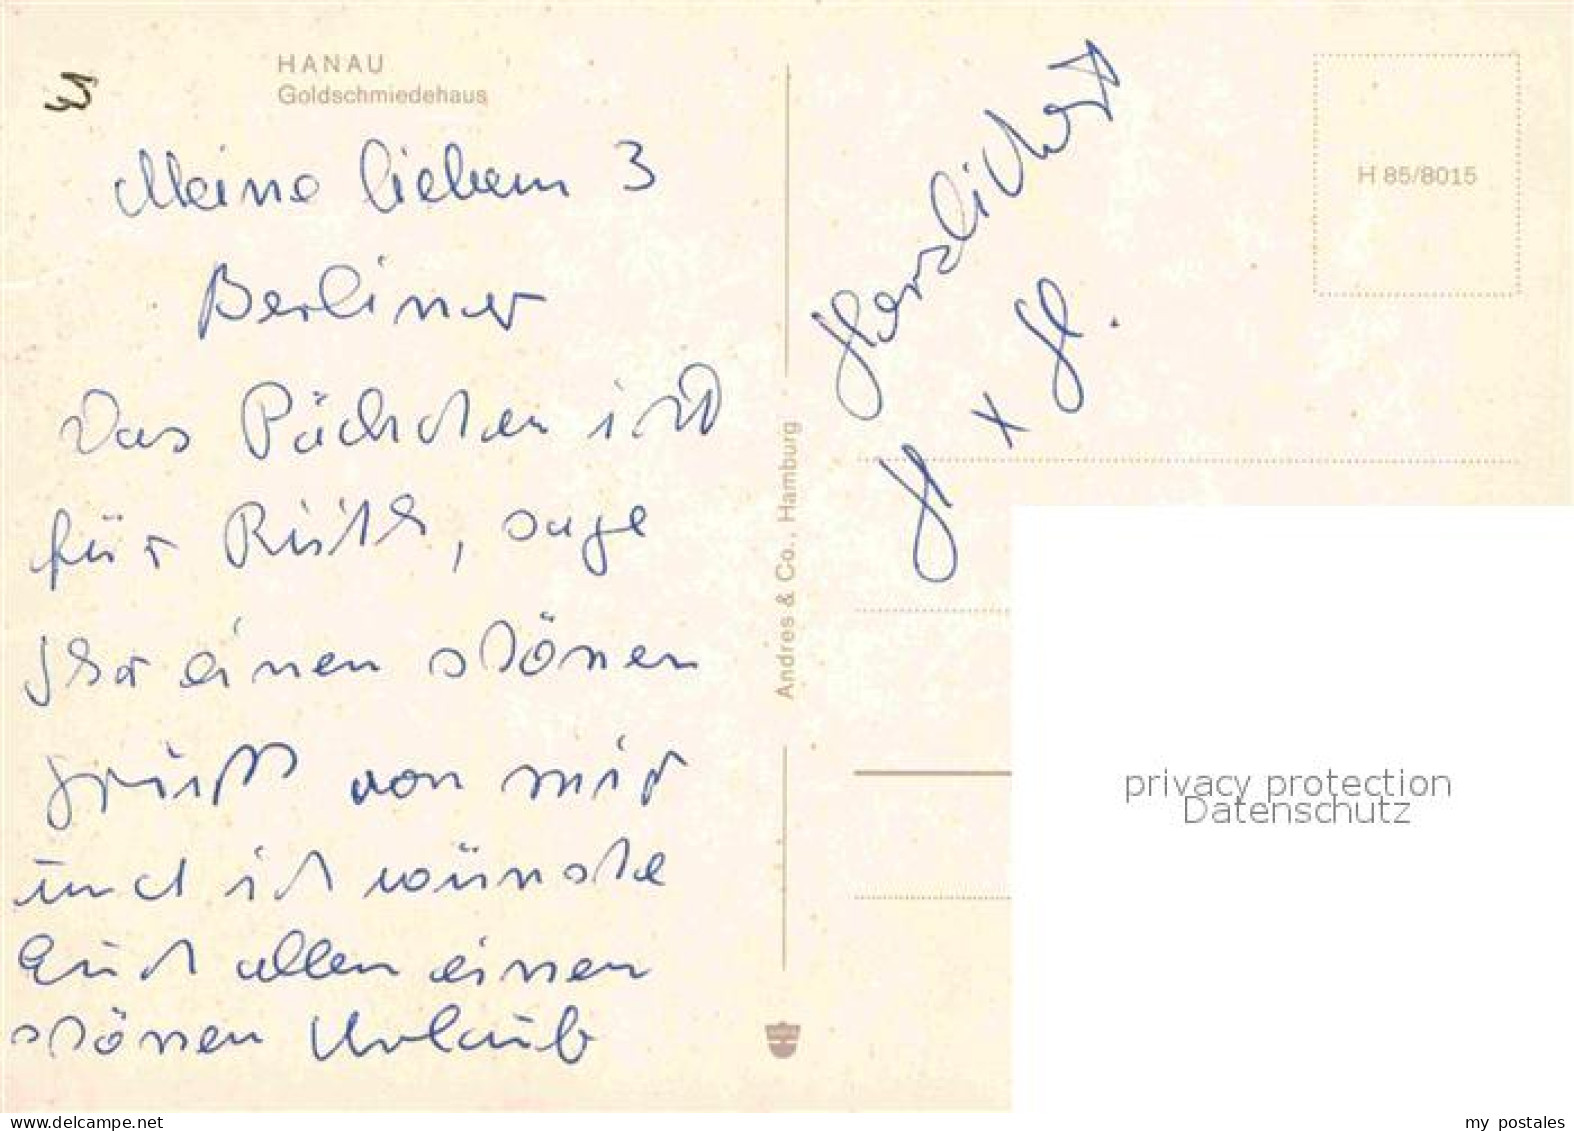 HANAU
Goldschmiedehaus
Meine lieben 3
Berliner
Das Päckchen ist
für Ruth, sage
Ihr einen schönen
Gruß von mir
und ich wünsche
Euch allen einen
schönen Urlaub
Herzlichst
H x H.
Andres & Co., Hamburg
H 85/8015
privacy protection
Datenschutz
my postales